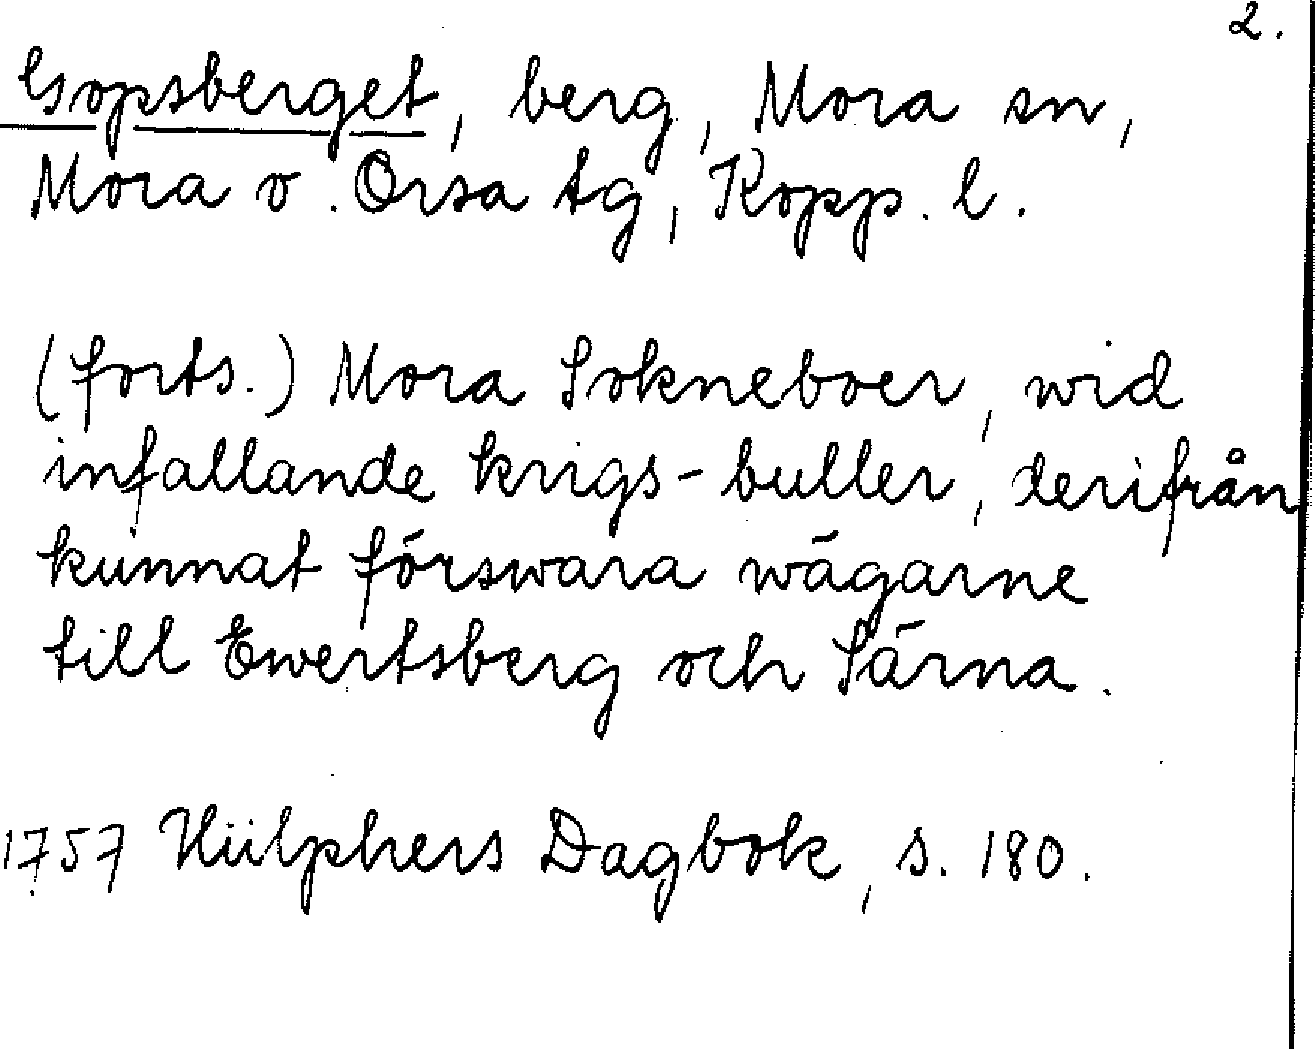 2.
Gopsberget, berg, Mora sn,
Mora o. Orsa tg, Kopp. l.
(forts.) Mora Sokneboer, wid
infallande krigs-buller, derifrån
kunnat förswara wägarne
till Ewertsberg och Särna.
1757 Hülphers Dagbok, s. 180.